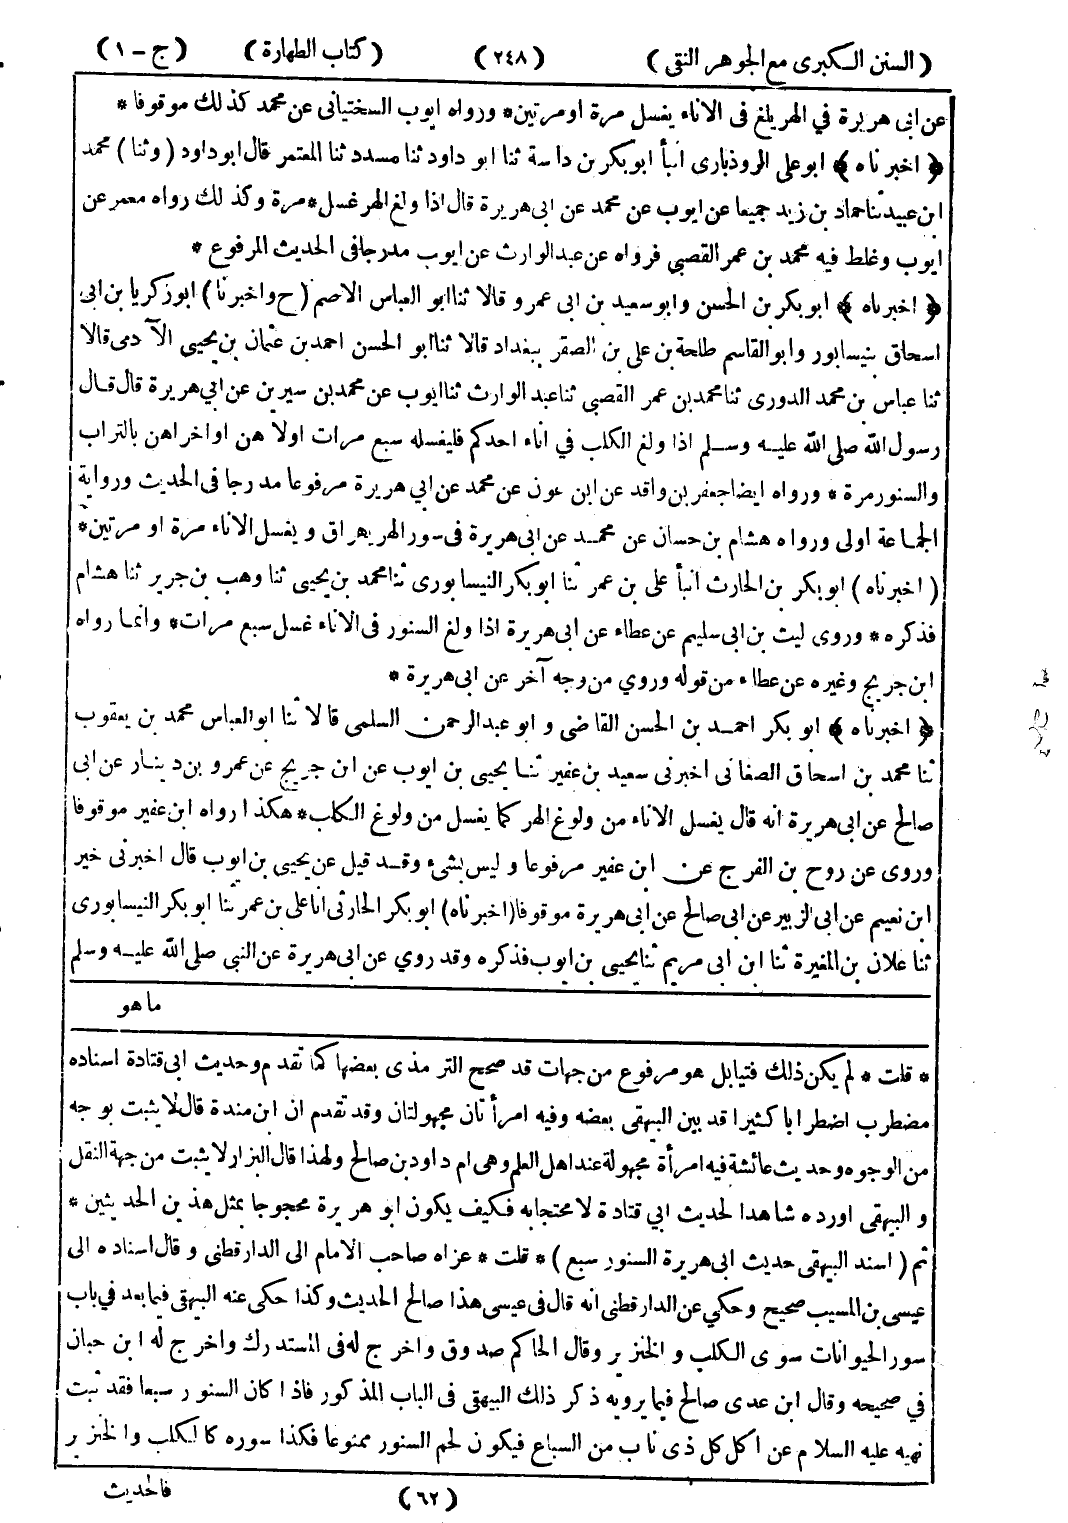 ( السنن الكبرى مع الجوهر النقى ) (٢٤٨) ( كتاب الطهارة ) ( ج - ١ )
عن ابى هريرة في الهر يلغ فى الاناء يغسل مرة او مرتين * ورواه ايوب السختيانى عن محمد كذلك موقوفا *
﴿ اخبرناه ﴾ ابو على الروذبارى انبأ ابوبكر بن داسة ثنا ابو داود ثنا مسدد ثنا المعتمر قال ابو داود ( وثنا ) محمد
ابن عبيد ثنا حماد بن زيد جميعا عن ايوب عن محمد عن ابى هريرة قال اذا ولغ الهر غسل * مرة وكذلك رواه معمر عن
ايوب وغلط فيه محمد بن عمر القصبي فرواه عن عبد الوارث عن ايوب مدرجا فى الحديث المرفوع *
﴿ اخبرناه ﴾ ابو بكر بن الحسن وابو سعيد بن ابى عمرو قالا ثنا ابو العباس الاصم ( ح واخبرنا ) ابو زكريا بن ابى
اسحاق بنيسابور وابو القاسم طلحة بن على بن الصقر ببغداد قالا ثنا ابو الحسن احمد بن عثمان بن يحيى الآدمى قالا
ثنا عباس بن محمد الدورى ثنا محمد بن عمر القصبي ثنا عبد الوارث ثنا ايوب عن محمد بن سيرين عن ابي هريرة قال قال
رسول الله صلى الله عليه وسلم اذا ولغ الكلب في اناء احدكم فليغسله سبع مرات اولاهن او اخراهن بالتراب
والسنور مرة * ورواه ايضا جعفر بن واقد عن ابن عون عن محمد عن ابي هريرة مرفوعا مدرجا فى الحديث ورواية
الجماعة اولى ورواه هشام بن حسان عن محمد عن ابى هريرة فى سور الهر يهراق ويغسل الاناء مرة او مرتين *
( اخبرناه ) ابو بكر بن الحارث انبأ على بن عمر ثنا ابو بكر النيسابورى ثنا محمد بن يحيى ثنا وهب بن جرير ثنا هشام
فذكره * وروى ليث بن ابى سليم عن عطاء عن ابى هريرة اذا ولغ السنور فى الاناء غسل سبع مرات * وانما رواه
ابن جريج وغيره عن عطاء من قوله وروي من وجه آخر عن ابى هريرة *
﴿ اخبرناه ﴾ ابو بكر احمد بن الحسن القاضى و ابو عبد الرحمن السلمى قالا ثنا ابو العباس محمد بن يعقوب
ثنا محمد بن اسحاق الصغانى اخبرنى سعيد بن عفير ثنا يحيى بن ايوب عن ابن جريج عن عمرو بن دينار عن ابى
صالح عن ابى هريرة انه قال يغسل الاناء من ولوغ الهر كما يغسل من ولوغ الكلب * هكذا رواه ابن عفير موقوفا
وروى عن روح بن الفرج عن ابن عفير مرفوعا و ليس بشىء وقد قيل عن يحيى بن ايوب قال اخبرنى خير
ابن نعيم عن ابى الزبير عن ابى صالح عن ابى هريرة موقوفا ( اخبرناه ) ابو بكر الحارثى انا على بن عمر ثنا ابو بكر النيسابورى
ثنا علان بن المغيرة ثنا ابن ابى مريم ثنا يحيى بن ايوب فذكره وقد روي عن ابى هريرة عن النبي صلى الله عليه وسلم
ما هو
* قلت * لم يكن ذلك فتيا بل هو مرفوع من جهات قد صحح الترمذى بعضها كما تقدم وحديث ابى قتادة اسناده
مضطرب اضطرابا كثيرا قد بين البيهقى بعضه وفيه امرأتان مجهولتان وقد تقدم ان ابن مندة قال لا يثبت بوجه
من الوجوه وحديث عائشة فيه امرأة مجهولة عند اهل العلم وهى ام داود بن صالح ولهذا قال البزار لا يثبت من جهة النقل
و البيهقى اورده شاهدا لحديث ابي قتادة لا محتجا به فكيف يكون ابو هريرة محجوجا بمثل هذين الحديثين *
ثم ( اسند البيهقى حديث ابى هريرة السنور سبع ) * قلت * عزاه صاحب الامام الى الدارقطنى وقال اسناده الى
عيسى بن المسيب صحيح وحكي عن الدارقطنى انه قال فى عيسى هذا صالح الحديث وكذا حكى عنه البيهقى فيما بعد في باب
سور الحيوانات سوى الكلب و الخنزير وقال الحاكم صدوق واخرج له فى المستدرك واخرج له ابن حبان
في صحيحه وقال ابن عدى صالح فيما يرويه ذكر ذلك البيهقى فى الباب المذكور فاذا كان السنور سبعا فقد ثبت
نهيه عليه السلام عن اكل كل ذى ناب من السباع فيكون لحم السنور ممنوعا فكذا سوره كالكلب والخنزير
(٦٢) فالحديث